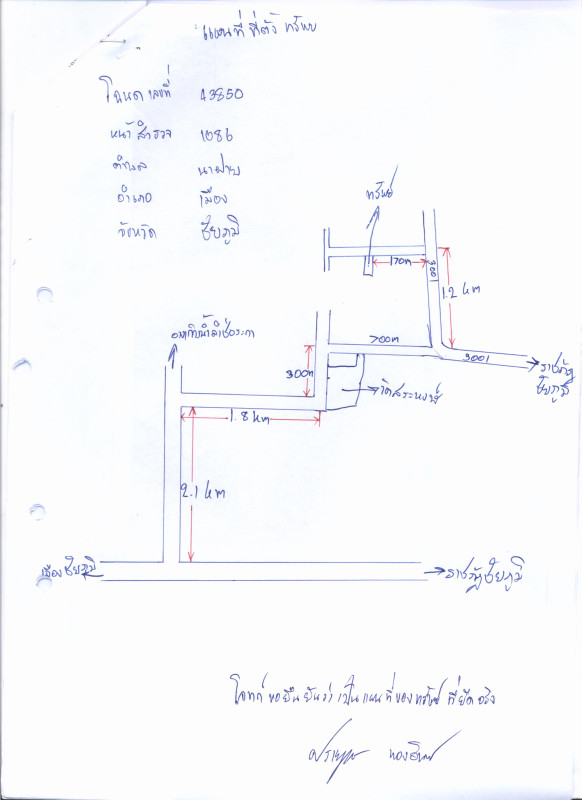 แผนที่ ที่ตั้ง ทรัพย์
โฉนด เลขที่ 43850
หน้าสำรวจ 1086
ตำบล นาฝาย
อำเภอ เมือง
จังหวัด ชัยภูมิ
ทรัพย์
170m
3001
1.2 km
700m
3001
ราชภัฏ
ชัยภูมิ
300m
วัดสระหงษ์
1.8 km
2.1 km
เมืองชัยภูมิ
ราชภัฏชัยภูมิ
โจทก์ ขอยืนยันว่า เป็นแผนที่ของทรัพย์ ที่ยึดจริง